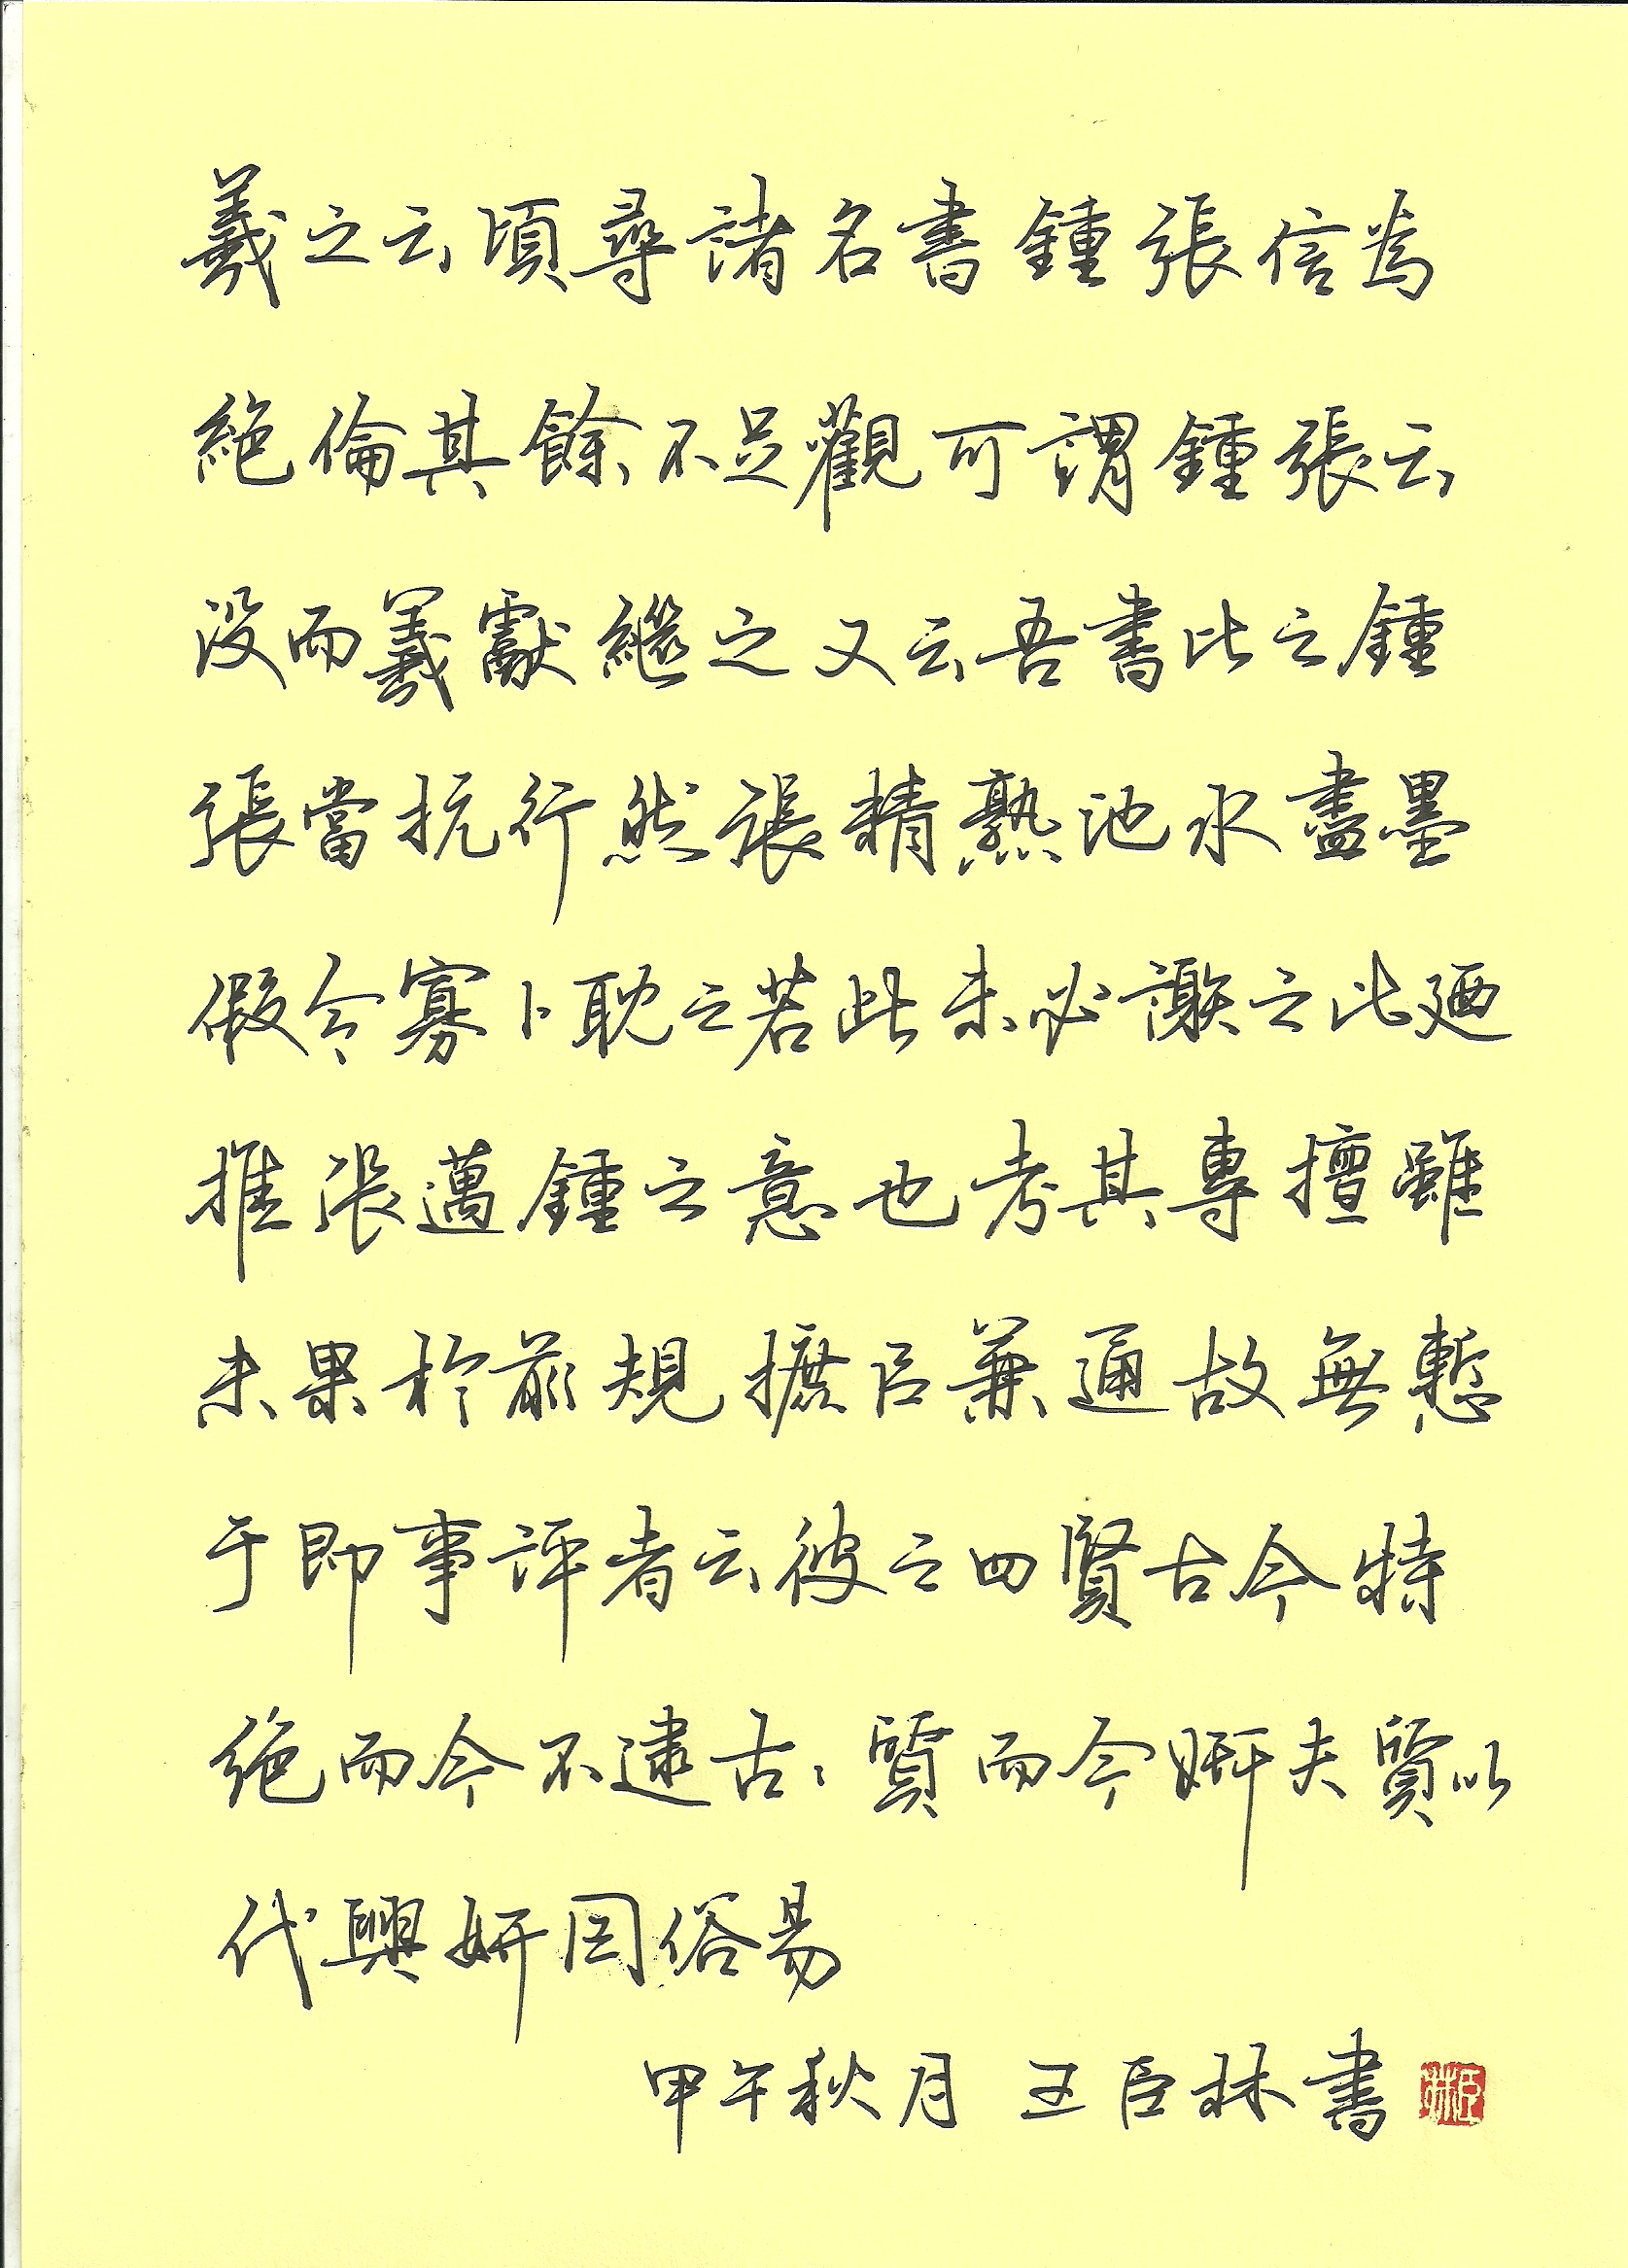 羲之云頃尋諸名書鍾張信為
絕倫其餘不足觀可謂鍾張云
沒而羲獻繼之又云吾書比之鍾
張當抗行然張精熟池水盡墨
假令寡卜耽之若此未必謝之此廼
推張邁鍾之意也考其專擅雖
未果於前規摭以兼通故無慙
于即事評者云彼之四賢古今特
絕而今不逮古〻質而今妍夫質以
代興妍因俗易
甲午秋月 王臣林書
臣林